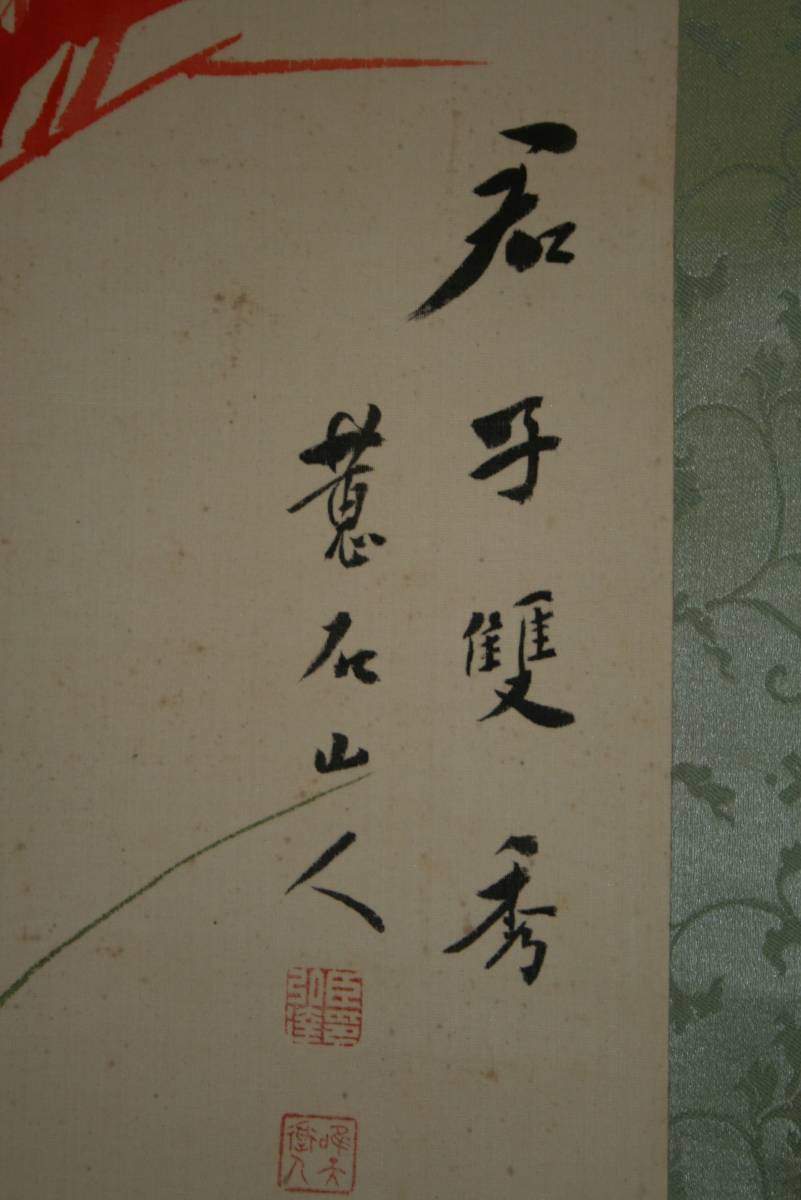 君子雙秀
蕙石山人